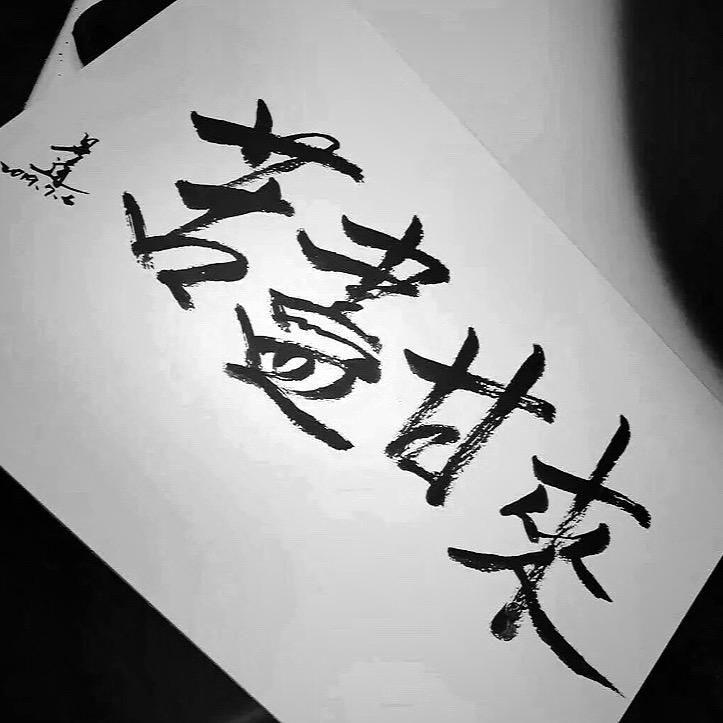 苦尽甘来
2019.7.6